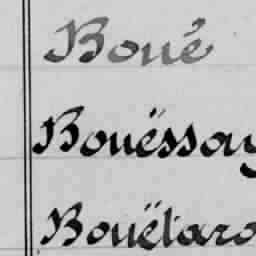 Boué
Bouëssay
Bouëtaro